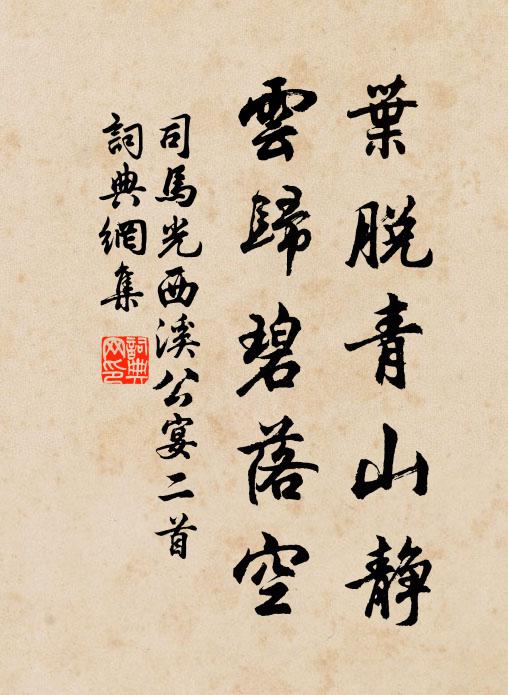 葉脱青山静
雲歸碧落空
司馬光西溪公宴二首
詞典網集
詞典網印